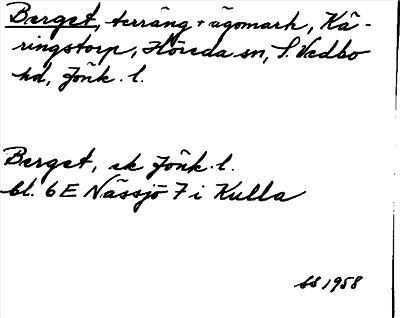 Berget, terräng + ägomark, Kä-
ringstorp, Höreda sn, S. Vedbo
hd, Jönk. l.
Berget, ek Jönk. l.
bl. 6E Nässjö 7 i Kulla
1958